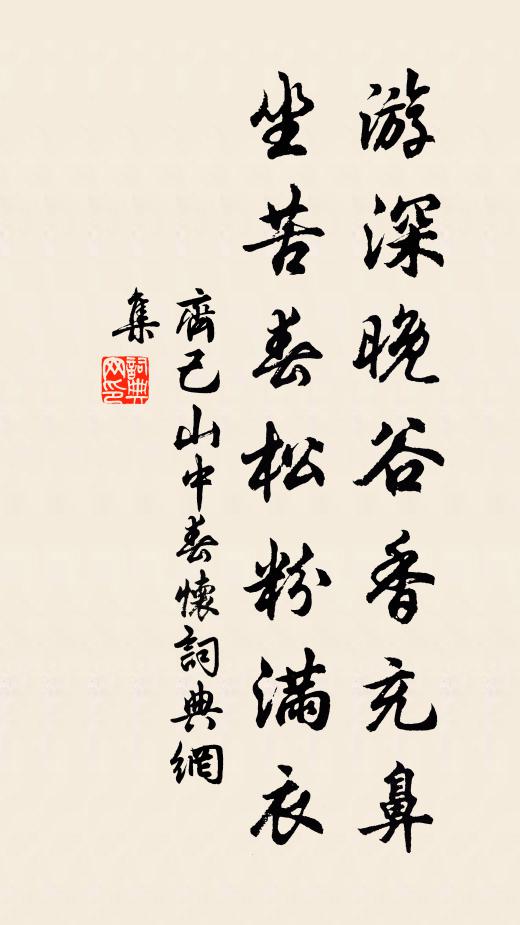 游深晚谷香充鼻
坐苦春松粉滿衣
齊己山中春懷詞典網
集
詞典
网印